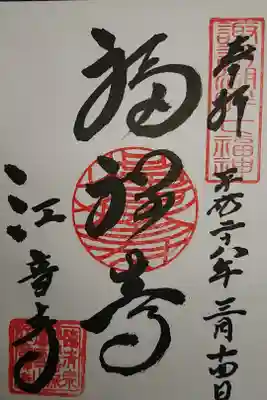 奉拝
平成二十八年三月十四日
福禄寿
江音寺